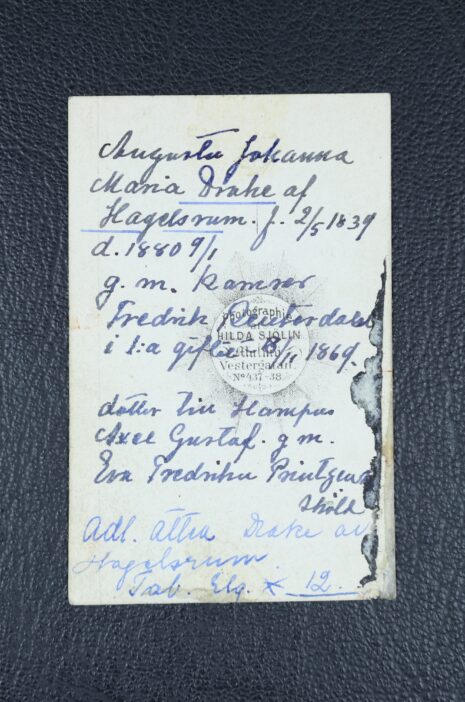 Augusta Johanna
Maria Drake af
Hagelsrum. f. 2/5 1839
d. 1880 9/1
g. m. kamrer
Fredrik Reuterdahl
i 1:a gifte 13/11 1869.
Photographie
HILDA SJÖLIN
Malmö
Vestergatan.
No 437-38.
dotter till Hampus
Axel Gustaf. g m.
Eva Fredrika Printzen
sköld
Adl. ätten Drake av
Hagelsrum
Tab. Elg. 12.